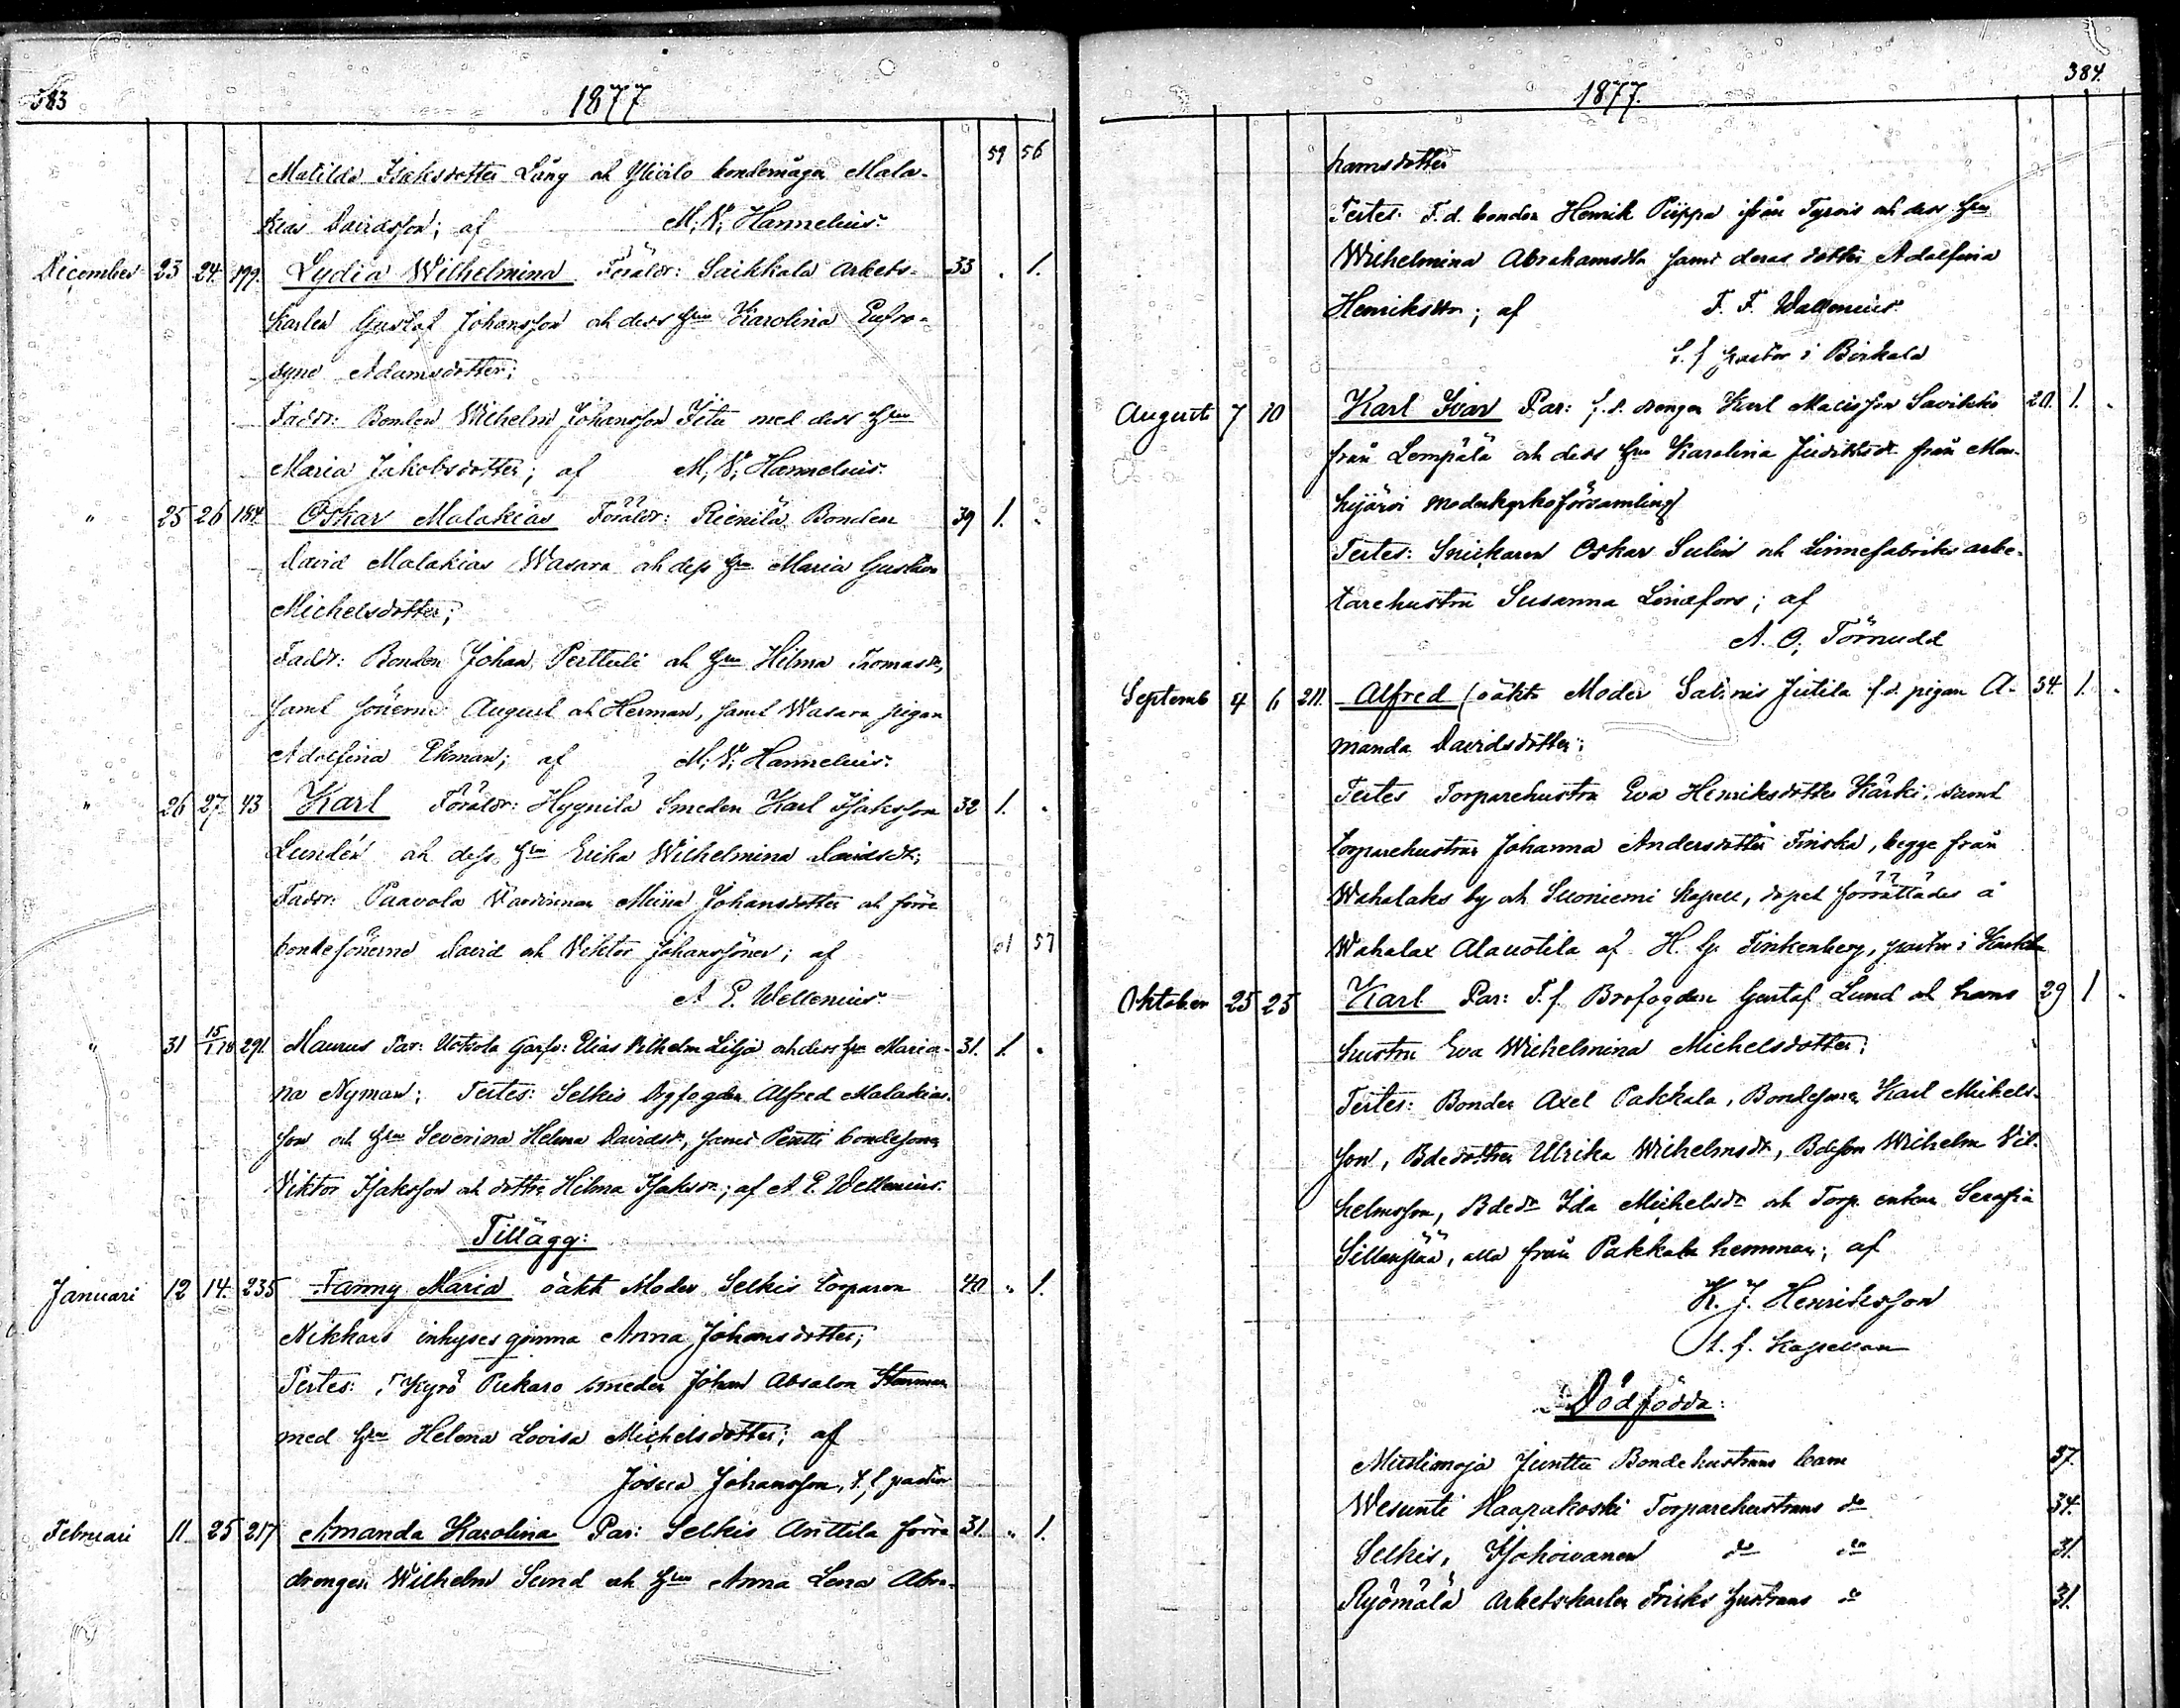 383
1877
59 56
Matilda Isaksdotter Lång och Yliirilo bondemågen Mala-
kias Davidsson; af M. V. Hannelius.
December 23 24. 199. Lydia Wilhelmina Föräldr: Saikkala arbets- 33 . 1.
karlen Gustaf Johansson och dess hu Karolina Eufro-
syne Adamsdotter;
Faddr: Bonden Wilhelm Johansson Jitu med dess hu
Maria Jakobsdotter; af M. V. Hannelius.
" 25 26 184. Oskar Malakias Föräldr: Rienilä Bonden 39 1. .
David Malakias Wasara och dess hu Maria Gustava
Michelsdotter;
Faddr: Bonden Johan Perttuli och hu Hilma Thomasdr,
samt sönerne August och Herman, samt Wasara pigan
Adolfina Ekman; af M. V. Hannelius.
" 26 27. 43 Karl Föräldr: Hygnilä Smeden Karl Isaksson 32 1. .
Lundén och dess hu Erika Wilhelmina Davidsdr;
Faddr: Paavola Värdinnan Miina Johansdotter och förre
bondesönerne David och Viktor Johanssöner; af 61 57
A. E. Wellenius.
" 31 15/1.78 291. Maurus Par: Uotola Garfv: Elias Vilhelm Lilja och dess hu Maria- 31. 1. .
na Nyman; Testes: Selkis Bygfogden Alfred Malakias-
son och hu Severina Helena Davidsdr, samt Pentti bondesonen
Viktor Isaksson och dottr. Hilma Isaksdr; af A. E. Wellenius.
Tillägg:
Januari 12 14. 235 Fanny Maria oäkta Moder Selkis torparen 40 " 1.
Nikkars inhyses qvinna Anna Johansdotter;
Testes: Kyrö Pukaro smeden Johan Absalon Stenman
med hu Helena Lovisa Michelsdotter; af
Josua Johansson, t. f. pastor
Februari 11 25 217 Amanda Karolina Par: Selkis Anttila förra 31. " 1.
drengen Wilhelm Sund och hu Anna Lena Abra-
384.
1877.
hamsdotter
Testes: F. d. bonden Henrik Piippa ifrån Tyrvis och dess hu
Wilhelmina Abrahamsdtr samt deras dotter Adolfina
Henriksdtr; af F. F. Wallenius.
t. f. pastor i Birkala
Augusti 7 10 Karl Ivar Par: f. d. drengen Karl Matisson Savikko 20. 1. .
från Lempälä och dess hu Karolina Juditsdr från Mou-
hijärvi moderkyrkoförsamling
Testes: Snickaren Oskar Sulin och Linnefabriks arbe-
tarehustru Susanna Lindfors; af
A. O. Törnudd
Septemb 4 6 211. Alfred (oäkta Moder Salmis Jutila f. d. pigan A- 34. 1. .
manda Davidsdotter;
Testes Torparehustru Eva Henriksdotter Kärki, samt
torparehustrun Johanna Andersdotter Finska, begge från
Wahalaks by och Suoniemi Kapell, dopet förrättades å
Wahalax Alauotila af H. G. Finkenberg, pastor i Karkku
Oktober 25 25 Karl Par: T. f. Brofogden Gustaf Lund och hans 29 1 .
hustru Eva Wilhelmina Michelsdotter;
Testes: Bonden Axel Pakkala, Bondesonen Karl Michels-
son, Bdedotter Ulrika Wilhelmsdr, Bdeson Wilhelm Vil-
helmsson, Bdedr Ida Michelsdr och Torp. enkan Serafia
Sillanpää, alla från Pakkala hemman; af
K. J. Henriksson
t. f. Kapellan
Dödfödda:
Mustianoja Junttu Bondehustruns barn 37.
Wesunti Haapakoski Torparehustruns do 34.
Selkis, Isohoivanen do do 31.
Ryömälä arbetskarlen Frisks hustruns do 31.